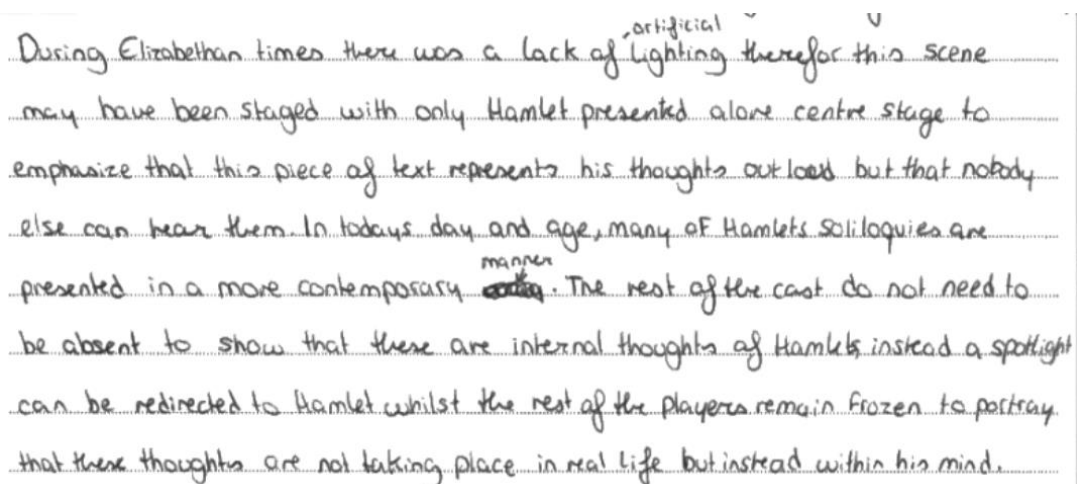 During Elizabethan times there was a lack of artificial lighting therefor this scene
may have been staged with only Hamlet presented alone centre stage to
emphasize that this piece of text represents his thoughts out loud but that nobody
else can hear them. In todays day and age, many of Hamlets soliloquies are
presented in a more contemporary manner. The rest of the cast do not need to
be absent to show that these are internal thoughts of Hamlets, instead a spotlight
can be redirected to Hamlet whilst the rest of the players remain frozen to portray
that these thoughts are not taking place in real life but instead within his mind.